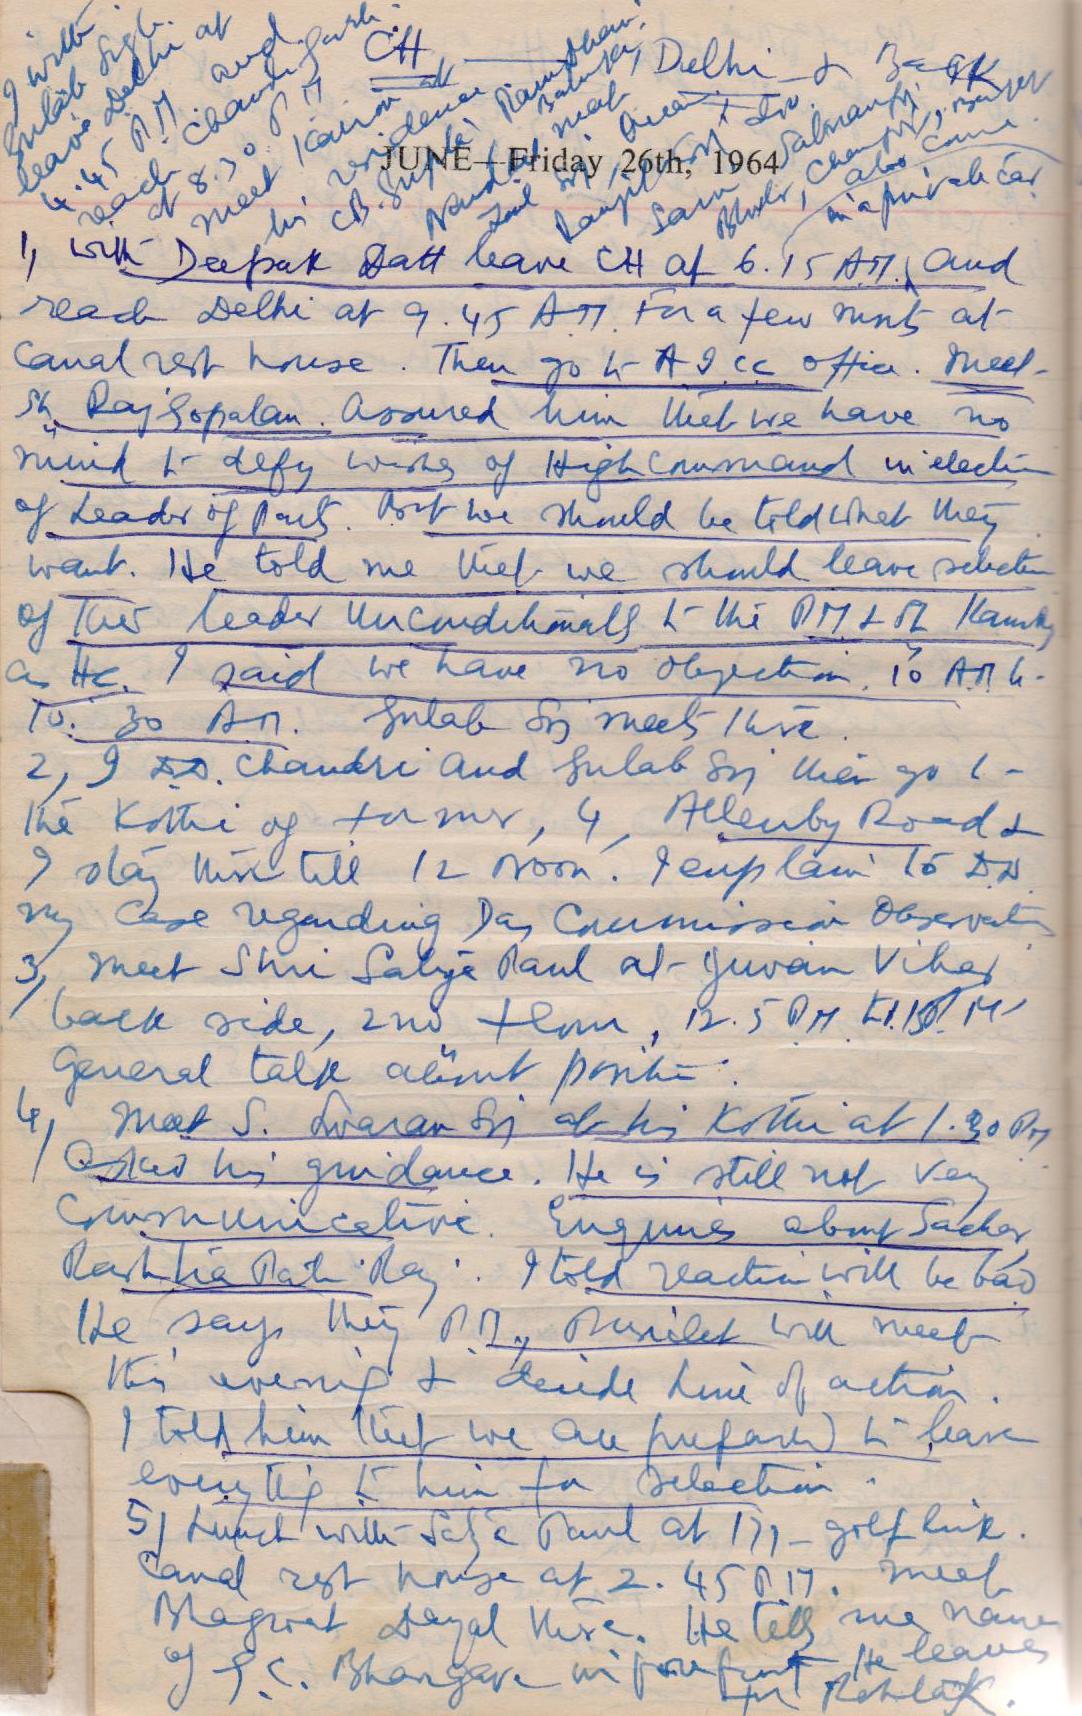 CH — Delhi & Back
JUNE—Friday 26th, 1964
1, with Deepak Datt leave CH at 6.15 AM, and
reach Delhi at 9.45 AM. For a few mnts at
Canal rest house. Then go to AICC office. Meet
Sh. Raj Gopalan. Assured him that we have no
mind to defy wishes of High Command in election
of Leader of Party. But we should be told what they
want. He told me that we should leave selection
of the leader unconditionally to the PM & Mr Kamraj
as HC. I said we have no objection. 10 AM to
10.30 AM. Gulab Sing meets there.
2, I D.D. Chandri and Gulab Sing then go to
the Kothi of former, 4, Allenby Road &
I stay there till 12 Noon. I explain to D.D.
my case regarding Das Commission Observation
3, Meet Shri Satya Paul at Yuvain Vihar
back side, 2nd floor, 12.5 PM
General talk about position.
4, Meet S. Swaran Sing at his Kothi at 1.30 PM
Asked his guidance. He is still not very
Communicative. Enquires about Sachar,
Rashtra Pati Raj. I told reaction will be bad
He says they PM, President will meet
this evening & decide line of action.
I told him that we are prepared to leave
everything to him for selection.
5, Lunch with Satya Paul at 171 - golf link.
Canal rest house at 2.45 PM. Meet
Bhagwat Dayal there. He tells me name
of G.C. Bhargava in forefront. He leaves
for Rohtak.
I with
Gulab Singh
leave Delhi at
4.45 PM and
reach Chandigarh
at 8.30 PM
meet Kairon at
his residence
C.B. Gupta, Ram
also come
in a private car